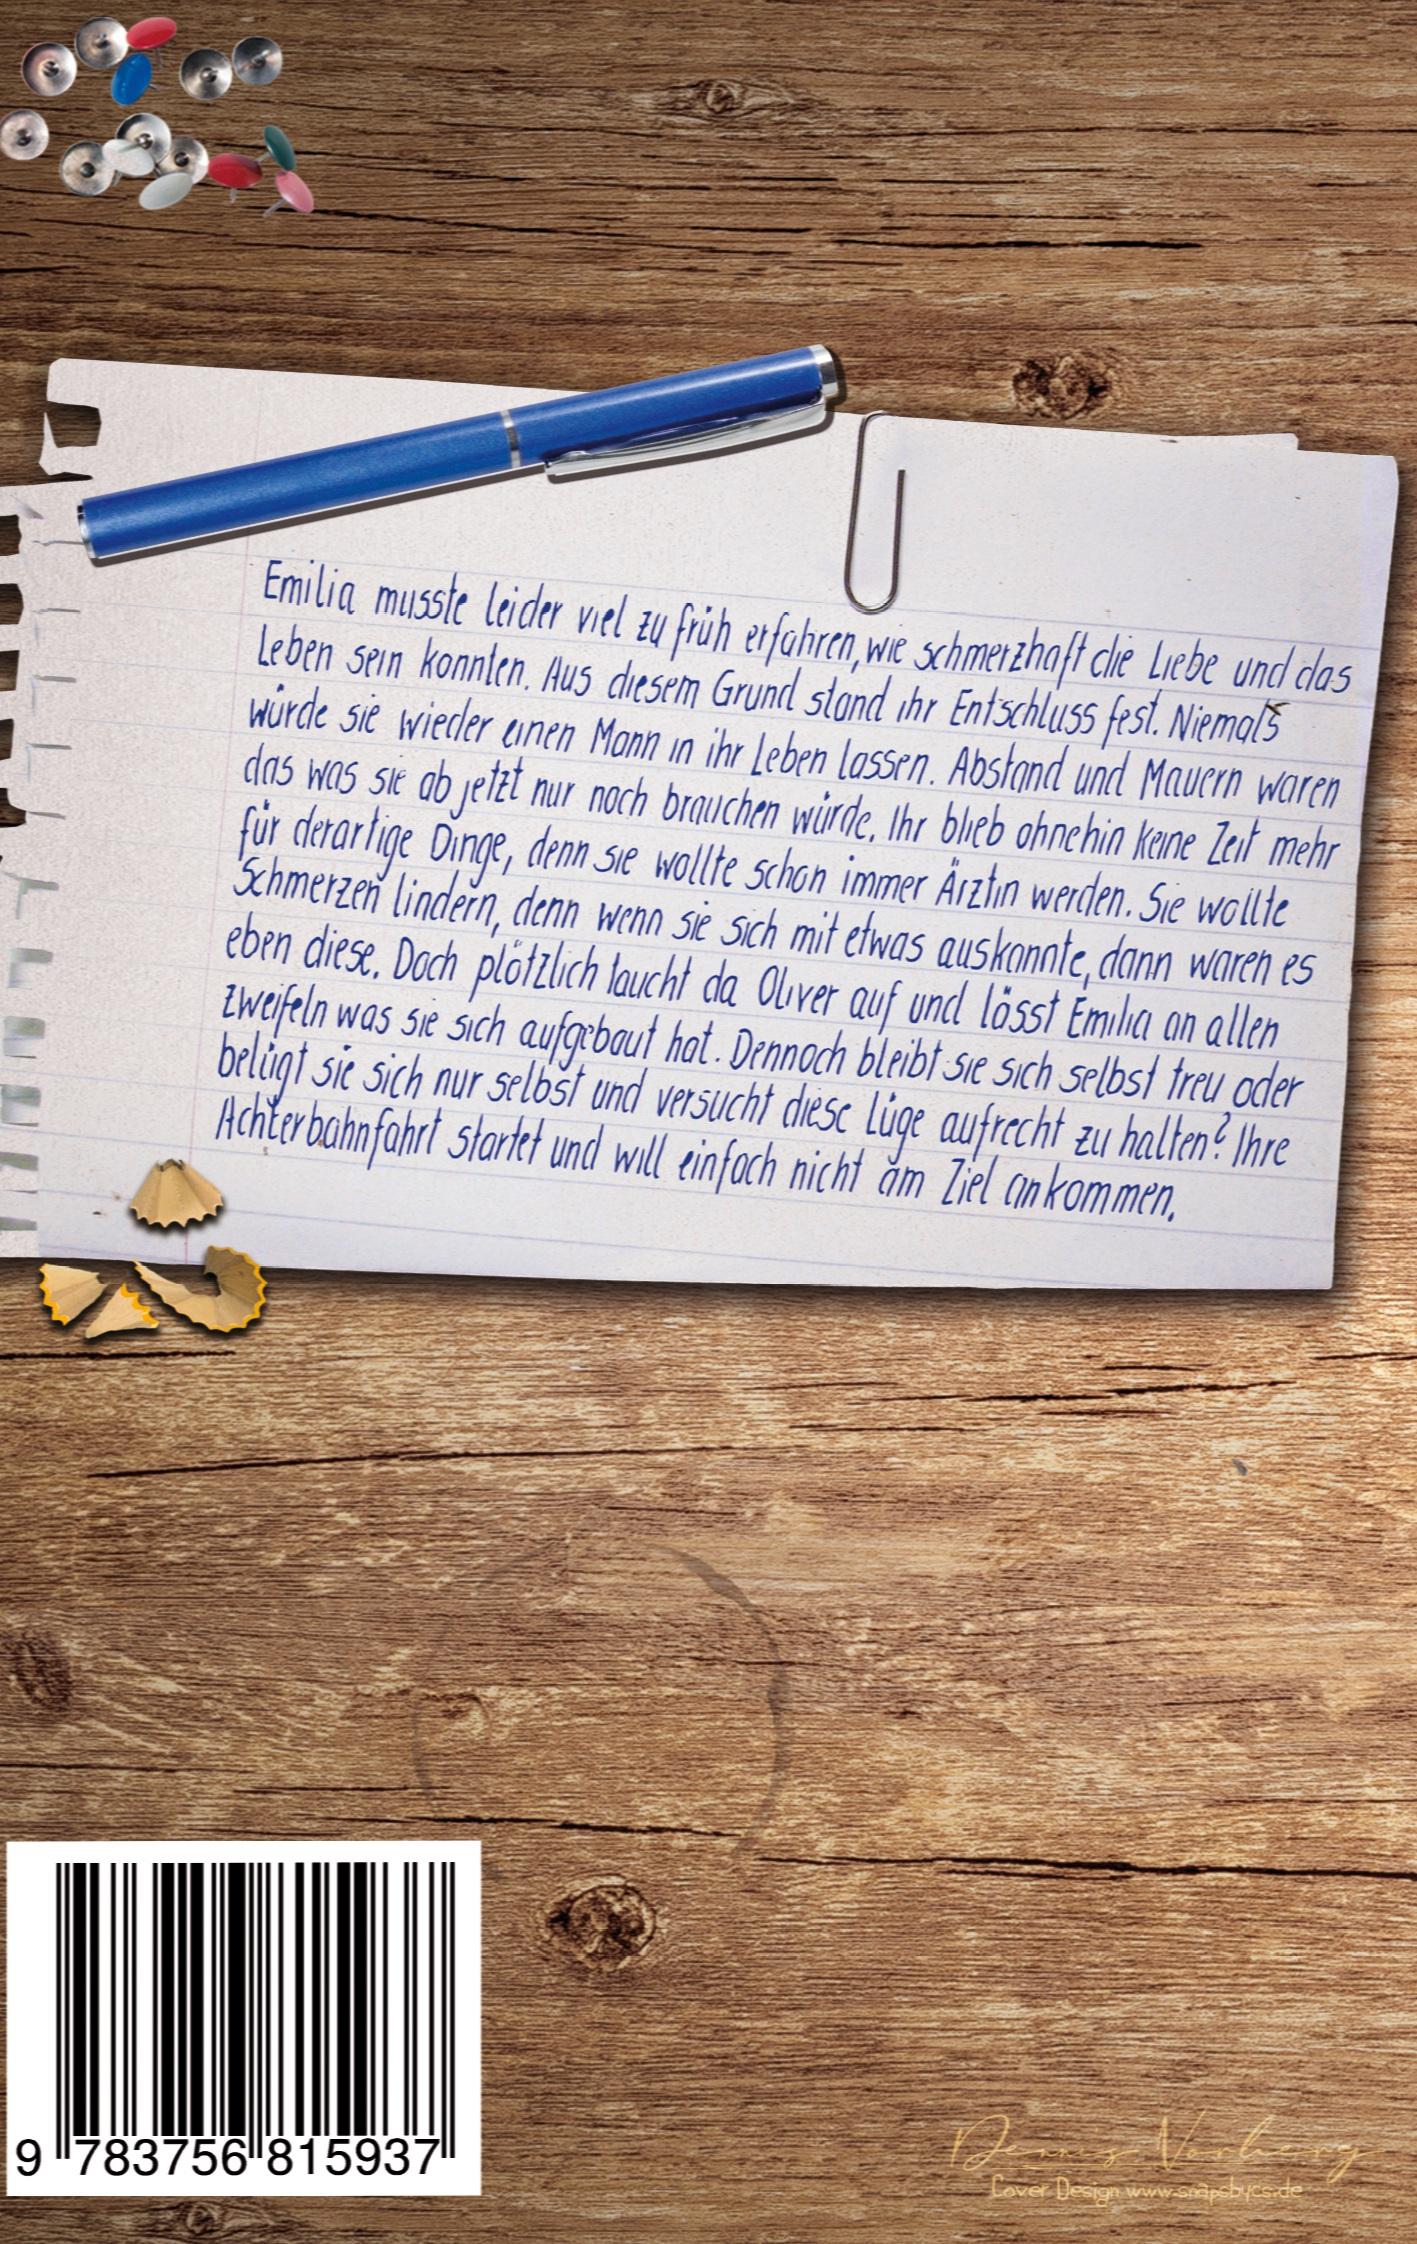 Emilia musste leider viel zu früh erfahren, wie schmerzhaft die Liebe und das
Leben sein konnten. Aus diesem Grund stand ihr Entschluss fest. Niemals
würde sie wieder einen Mann in ihr Leben lassen. Abstand und Mauern waren
das was sie ab jetzt nur noch brauchen würde. Ihr blieb ohnehin keine Zeit mehr
für derartige Dinge, denn sie wollte schon immer Ärztin werden. Sie wollte
Schmerzen lindern, denn wenn sie sich mit etwas auskannte, dann waren es
eben diese. Doch plötzlich taucht da Oliver auf und lässt Emilia an allen
zweifeln was sie sich aufgebaut hat. Dennoch bleibt sie sich selbst treu oder
belügt sie sich nur selbst und versucht diese Lüge aufrecht zu halten? Ihre
Achterbahnfahrt startet und will einfach nicht am Ziel ankommen.
9 783756 815937
Dennis Vorberg
Cover Design www.snapsbycs.de